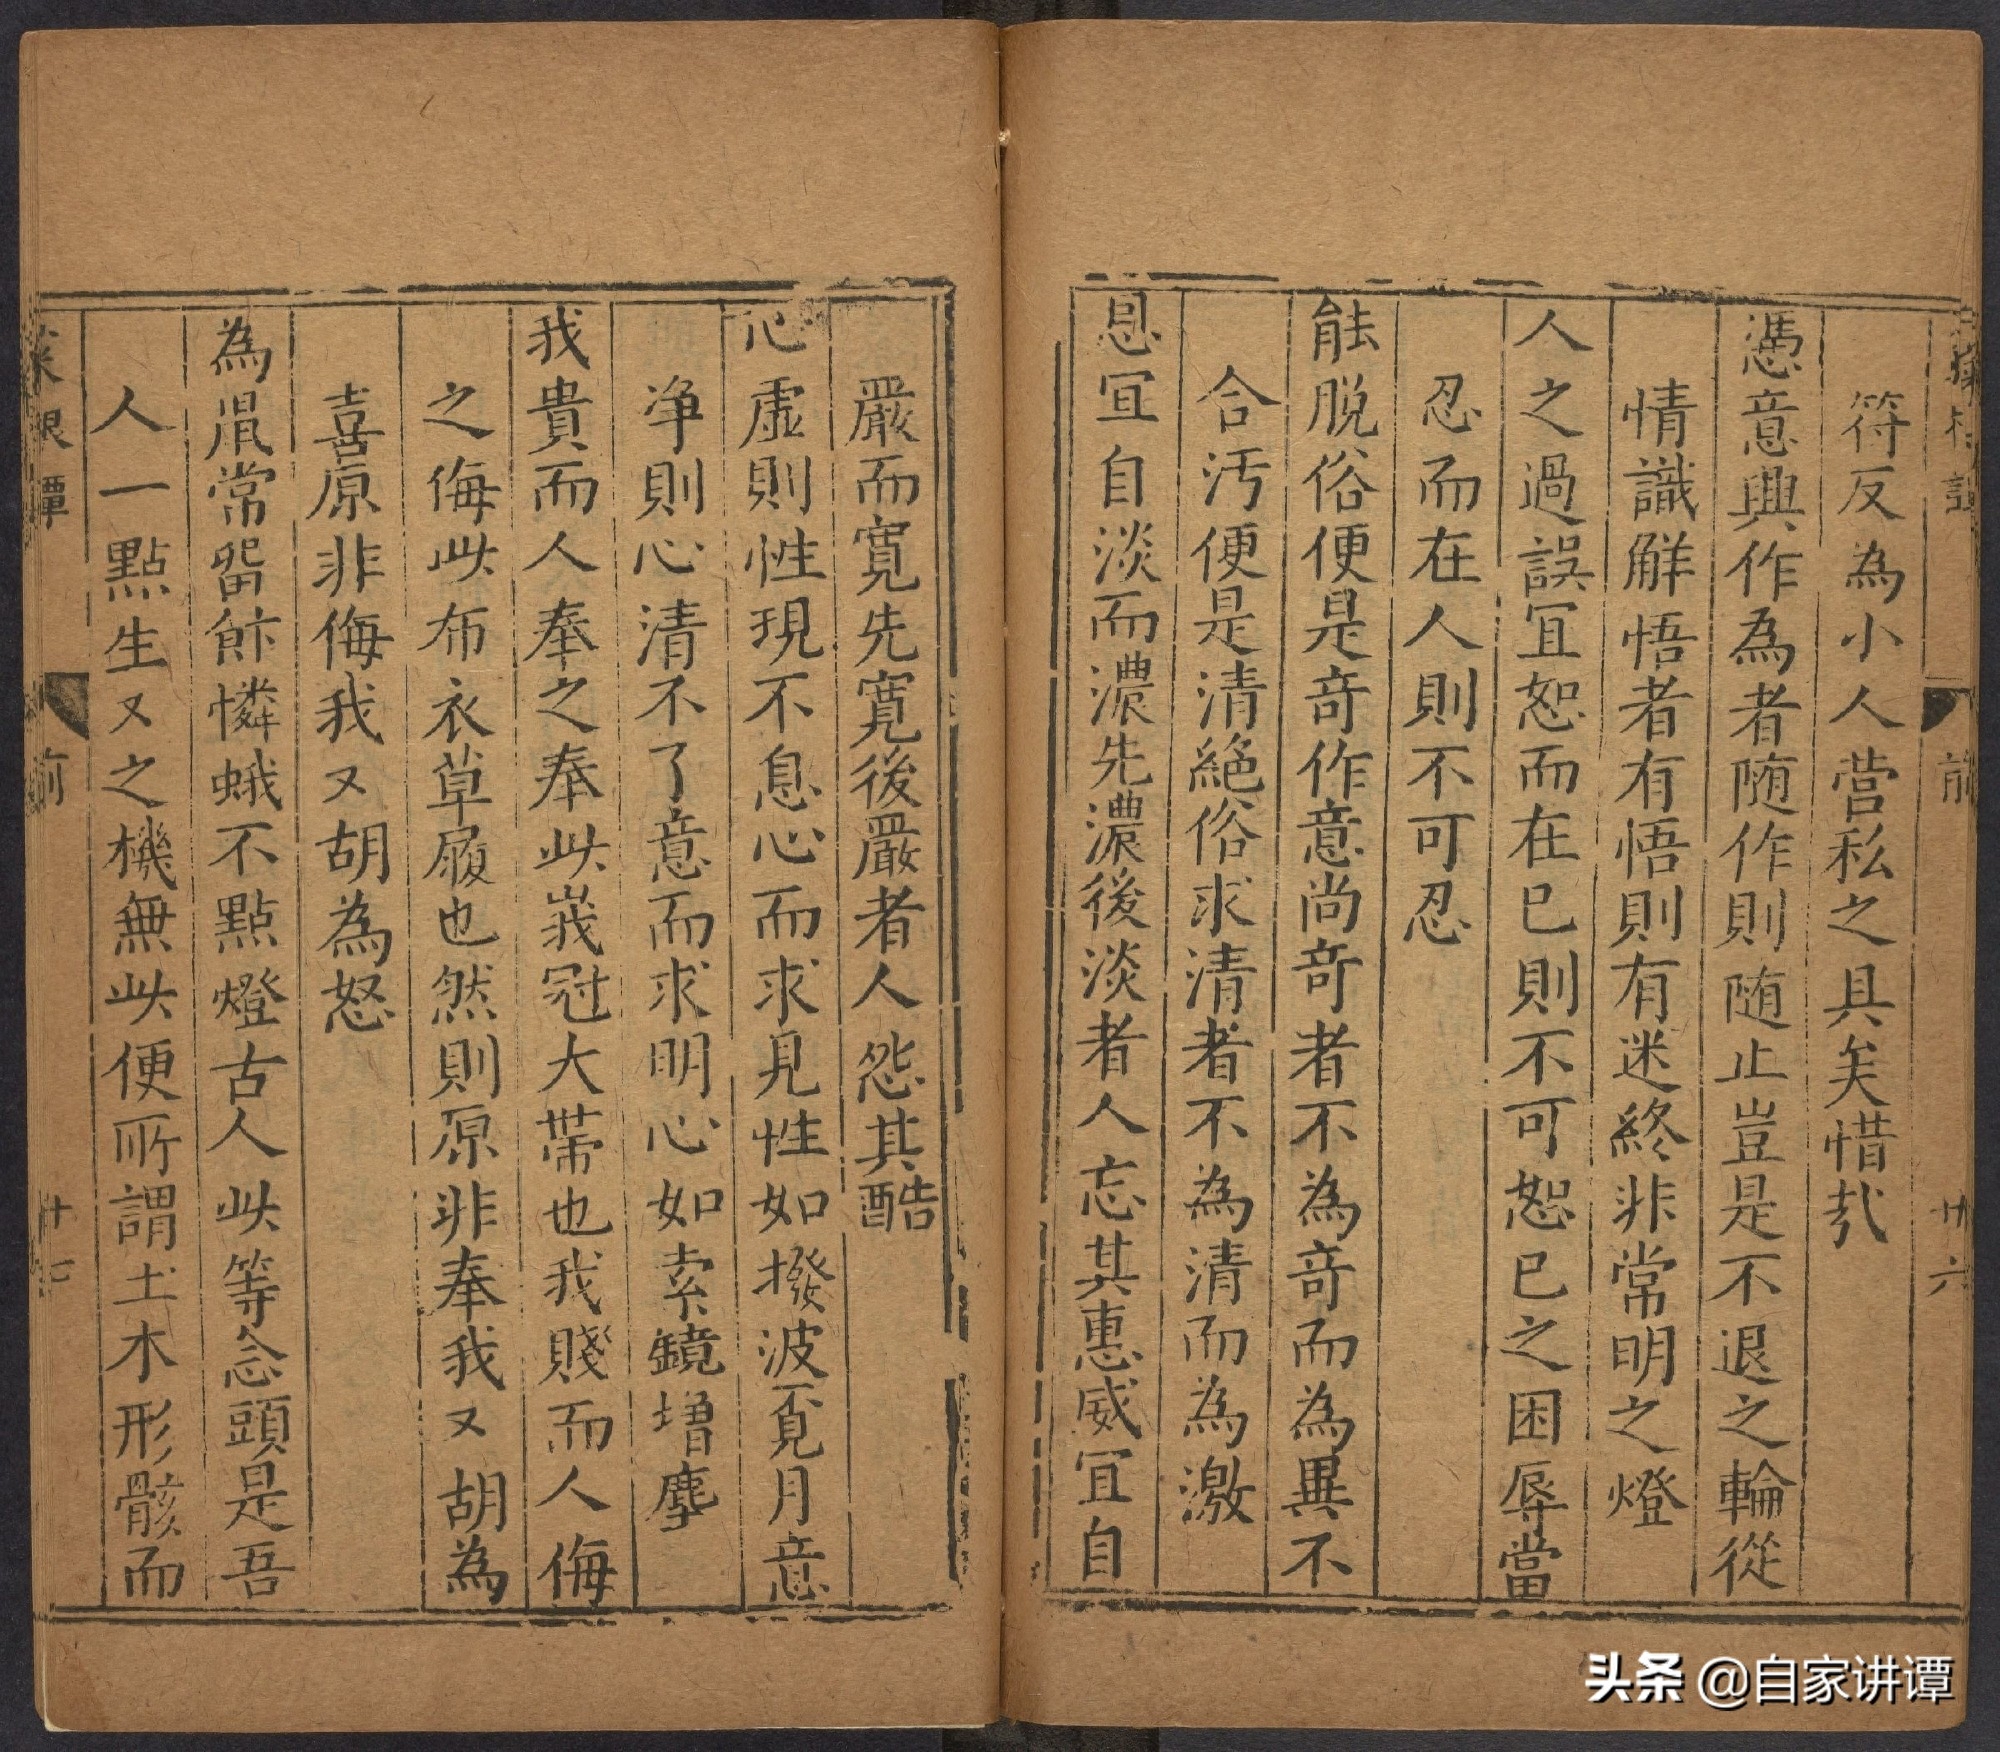 前
廿六
符反為小人營私之具矣惜哉
憑意興作為者随作則随止豈是不退之輪從
情識解悟者有悟則有迷終非常明之燈
人之過誤宜恕而在已則不可恕已之困辱當
忍而在人則不可忍
能脱俗便是竒作意尚竒者不為竒而為異不
合汚便是清絶俗求清者不為清而為激
恩宜自淡而濃先濃後淡者人忘其惠威宜自
嚴而寛先寛後嚴者人怨其酷
心虚則性現不息心而求見性如撥波覔月意
净則心清不了意而求明心如索鏡增塵
我貴而人奉之奉此峩冠大帶也我賤而人侮
之侮此布衣草履也然則原非奉我又胡為
喜原非侮我又胡為怒
為鼠常留飰憐蛾不點燈古人此等念頭是吾
人一點生又之機無此便所謂土木形骸而
菜根譚
前
十七
头条 @自家讲谭